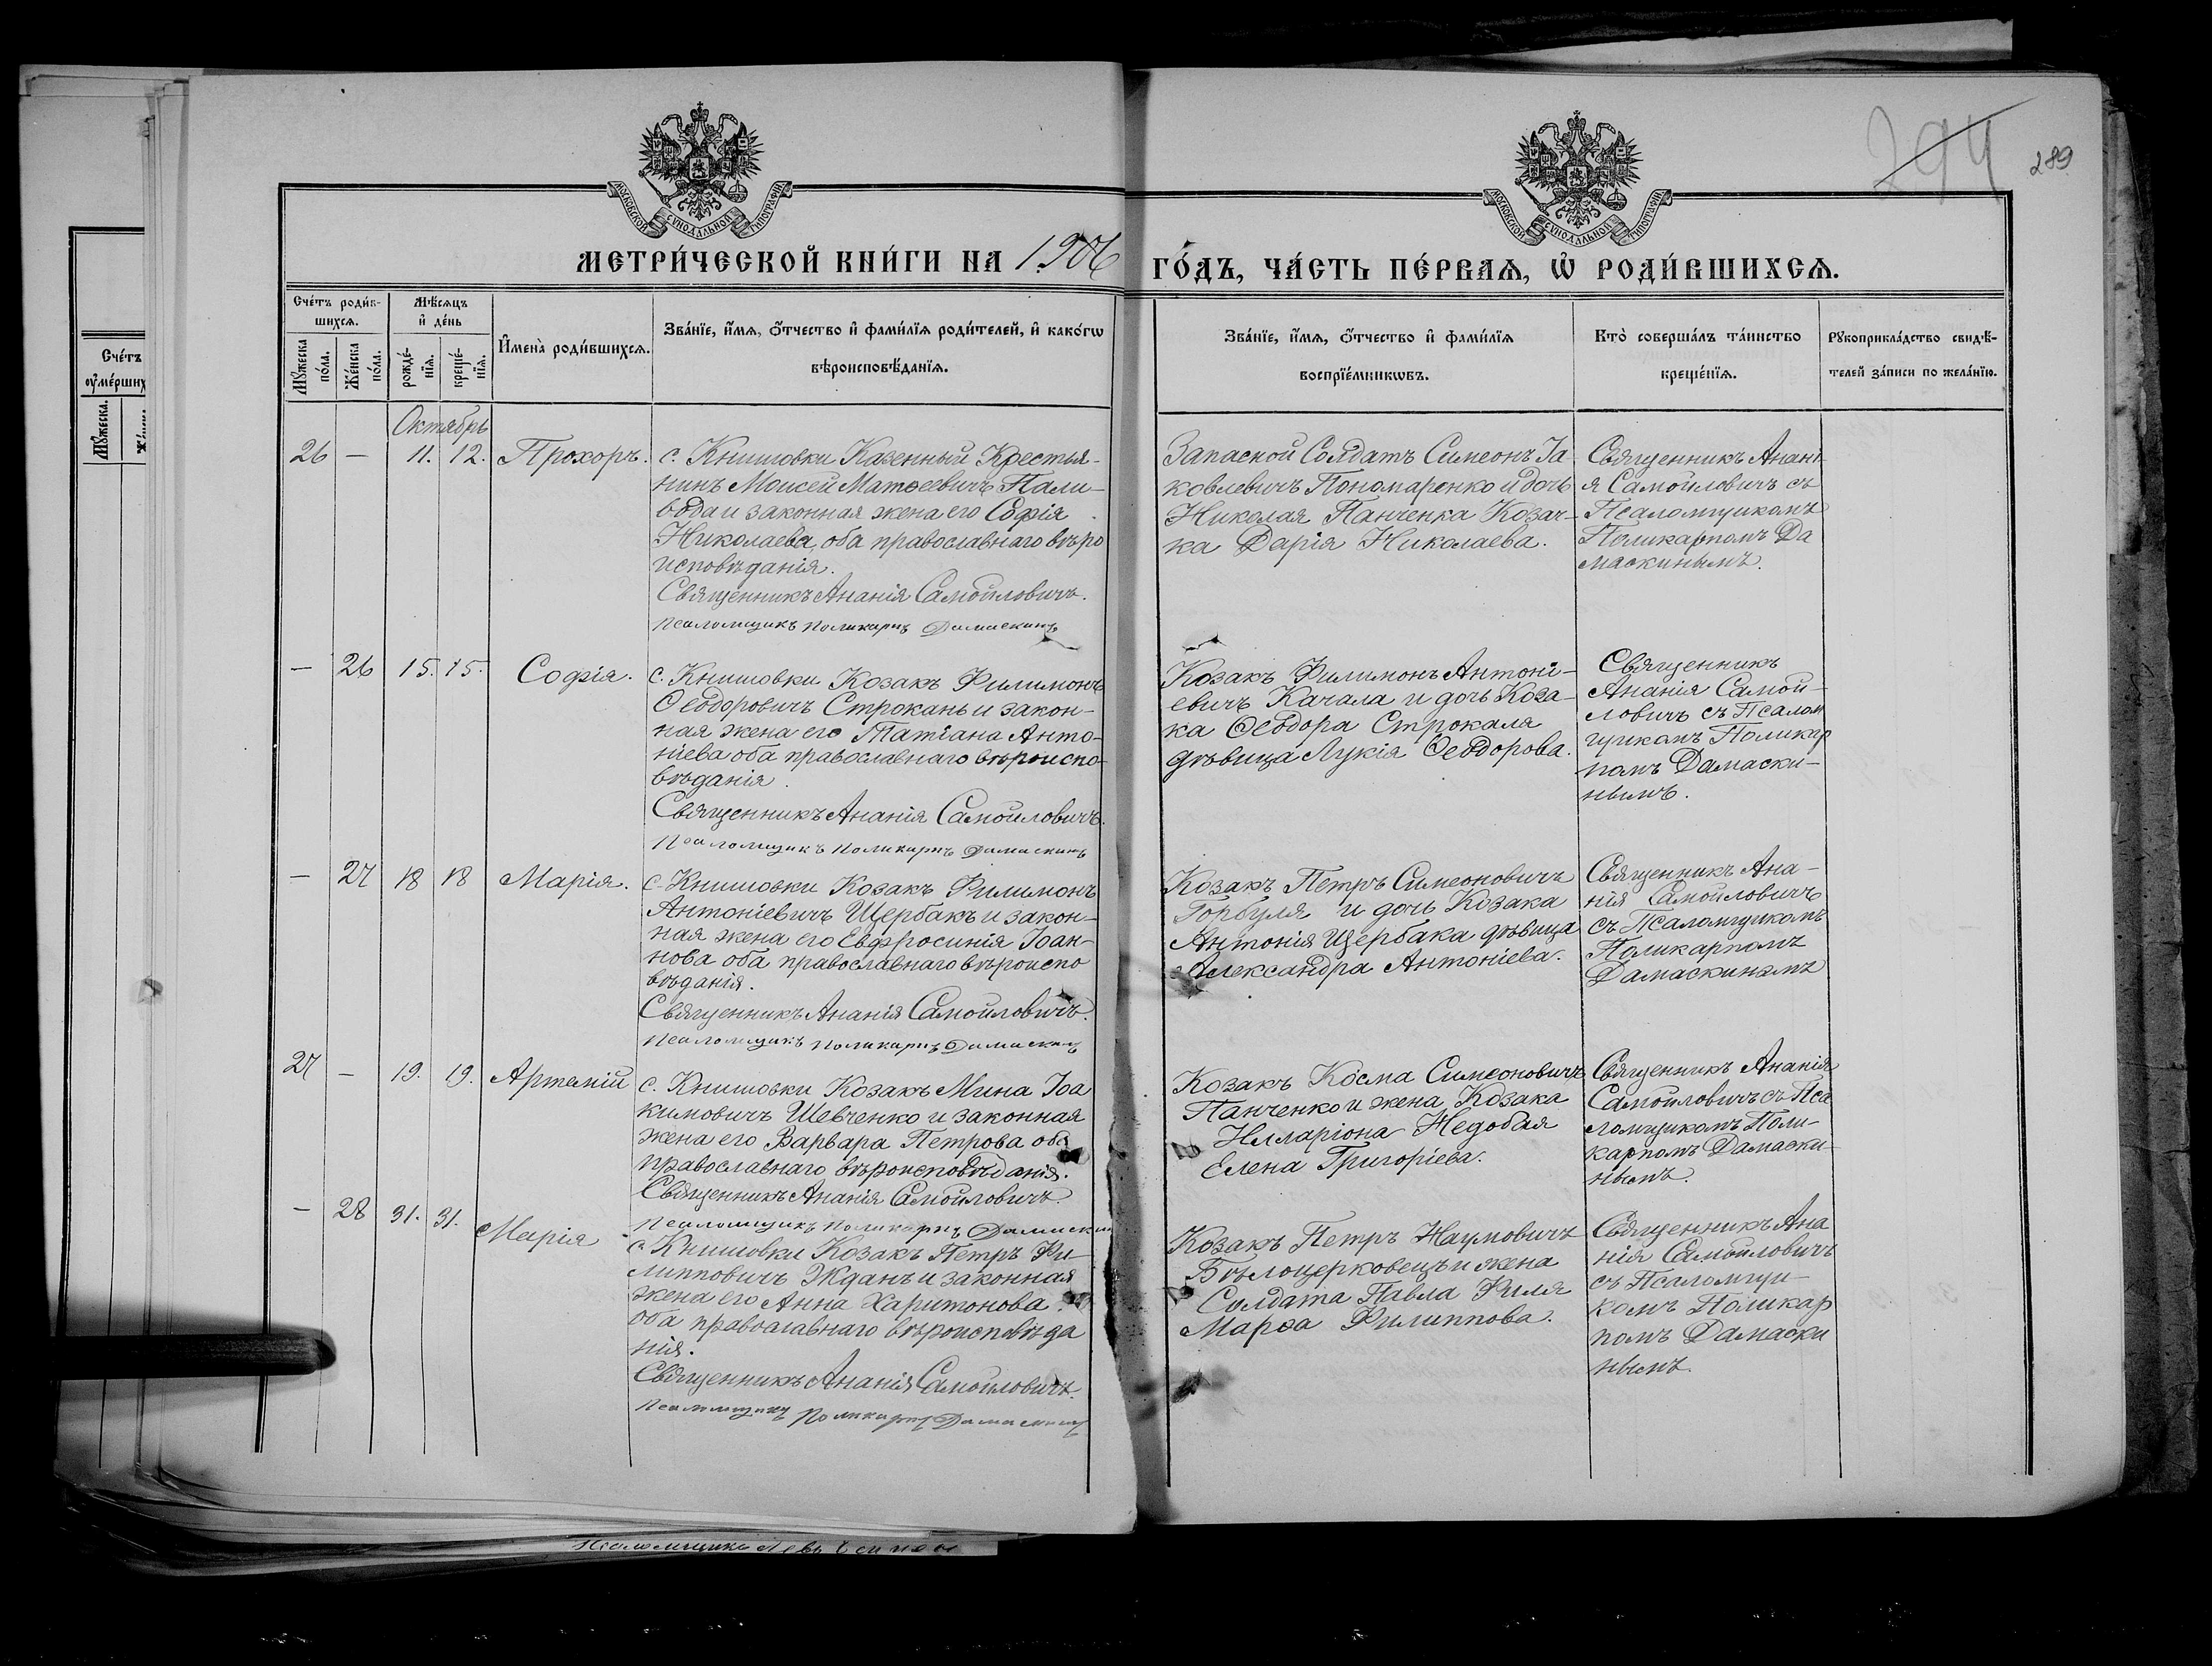 294
289
МОСКОВСКОЙ СѴНОДАЛЬНОЙ ТИПОГРАФІИ
МОСКОВСКОЙ СѴНОДАЛЬНОЙ ТИПОГРАФІИ
МЕТРИ́ЧЕСКОЙ КНИ́ГИ НА 1906 ГО́ДЪ, ЧА́СТЬ ПЕ́РВАѦ, Ѡ҆ РОДИ́ВШИХСѦ.
Сче́тъ
ᲂу҆ме́рших
Мꙋ́жеска.
Сче́тъ роди́в-
шихсѧ.
Мꙋ́жеска по́ла.
Же́нска по́ла.
Мѣ́сѧцъ
и҆ де́нь
рожде́-
нїѧ.
креще́-
нїѧ.
И҆мена̀ роди́вшихсѧ.
Зва́нїе, и҆́мѧ, ѻ҆́тчество и҆ фами́лїѧ роди́телей, и҆ како́гѡ
вѣроисповѣ́данїѧ.
Зва́нїе, и҆́мѧ, ѻ҆́тчество и҆ фами́лїѧ
воспрїе́мникѡвъ.
Кто̀ соверша́лъ та́инство
креще́нїѧ.
Рꙋкоприкла́дство свидѣ́-
телей за́писи по жела́нїю.
Октябрь
26 — 11. 12. Прохоръ.
с. Книшовки Казенный Крестья-
нинъ Моисей Матѳеевичъ Пали-
вода и законная жена его Софія
Николаева, оба православнаго вѣро
исповѣданія.
Священникъ Ананія Самойловичъ.
Псаломщикъ Поликарпъ Дамаскинъ
Запасной Солдатъ Симеонъ Іа-
ковлевичъ Пономаренко и дочь
Николая Панченка Козач-
ка Дарія Николаева.
Священникъ Анані-
я Самойловичъ съ
Псаломщикомъ
Поликарпомъ Да
маскинымъ.
— 26 15. 15. Софія.
с. Книшовки Козакъ Филимонъ
Ѳеодоровичъ Строкань и закон-
ная жена его Татіана Анто-
ніева оба православнаго вѣроиспо-
вѣданія.
Священникъ Ананія Самойловичъ.
Псаломщикъ Поликарпъ Дамаскинъ
Козакъ Филимонъ Антоні-
евичъ Качала и дочь Коза-
ка Ѳеодора Строкаля
дѣвица Лукія Ѳеодорова.
Священникъ
Ананія Самой-
ловичъ съ Псалом
щикомъ Поликар
помъ Дамаски-
нымъ.
— 27 18 18 Марія.
с. Книшовки Козакъ Филимонъ
Антоніевичъ Щербакъ и закон-
ная жена его Евфросинія Іоан-
нова оба православнаго вѣроиспо
вѣданія.
Священникъ Ананія Самойловичъ.
Псаломщикъ Поликарпъ Дамаскинъ
Козакъ Петръ Симеоновичъ
Горбуля и дочь Козака
Антонія Щербака дѣвица
Александра Антоніева.
Священникъ Ана-
нія Самойловичъ
съ Псаломщикомъ
Поликарпомъ
Дамаскинымъ
27 — 19. 19. Артемій
с. Книшовки Козакъ Мина Іоа
кимовичъ Шевченко и законная
жена его Варвара Петрова оба
православнаго вѣроисповѣданія.
Священникъ Ананія Самойловичъ.
Псаломщикъ Поликарпъ Дамаскин
Козакъ Косма Симеоновичъ
Панченко и жена Козака
Илларіона Недобая
Елена Григоріева.
Священникъ Ананія
Самойловичъ съ Пса
ломщикомъ Поли-
карпомъ Дамаски-
нымъ.
— 28 31. 31. Марія
с. Книшовки Козакъ Петръ Фи-
липповичъ Жданъ и законная
жена его Анна Харитонова.
оба православнаго вѣроисповѣда
нія.
Священникъ Ананія Самойловичъ.
Псаломщикъ Поликарпъ Дамаскинъ
Козакъ Петръ Наумовичъ
Бѣлоцерковецъ и жена
Солдата Павла Филя
Марѳа Филиппова.
Священникъ Ана
нія Самойловичъ
съ Псаломщи-
комъ Поликар
помъ Дамаски
нымъ.
Псаломщикъ